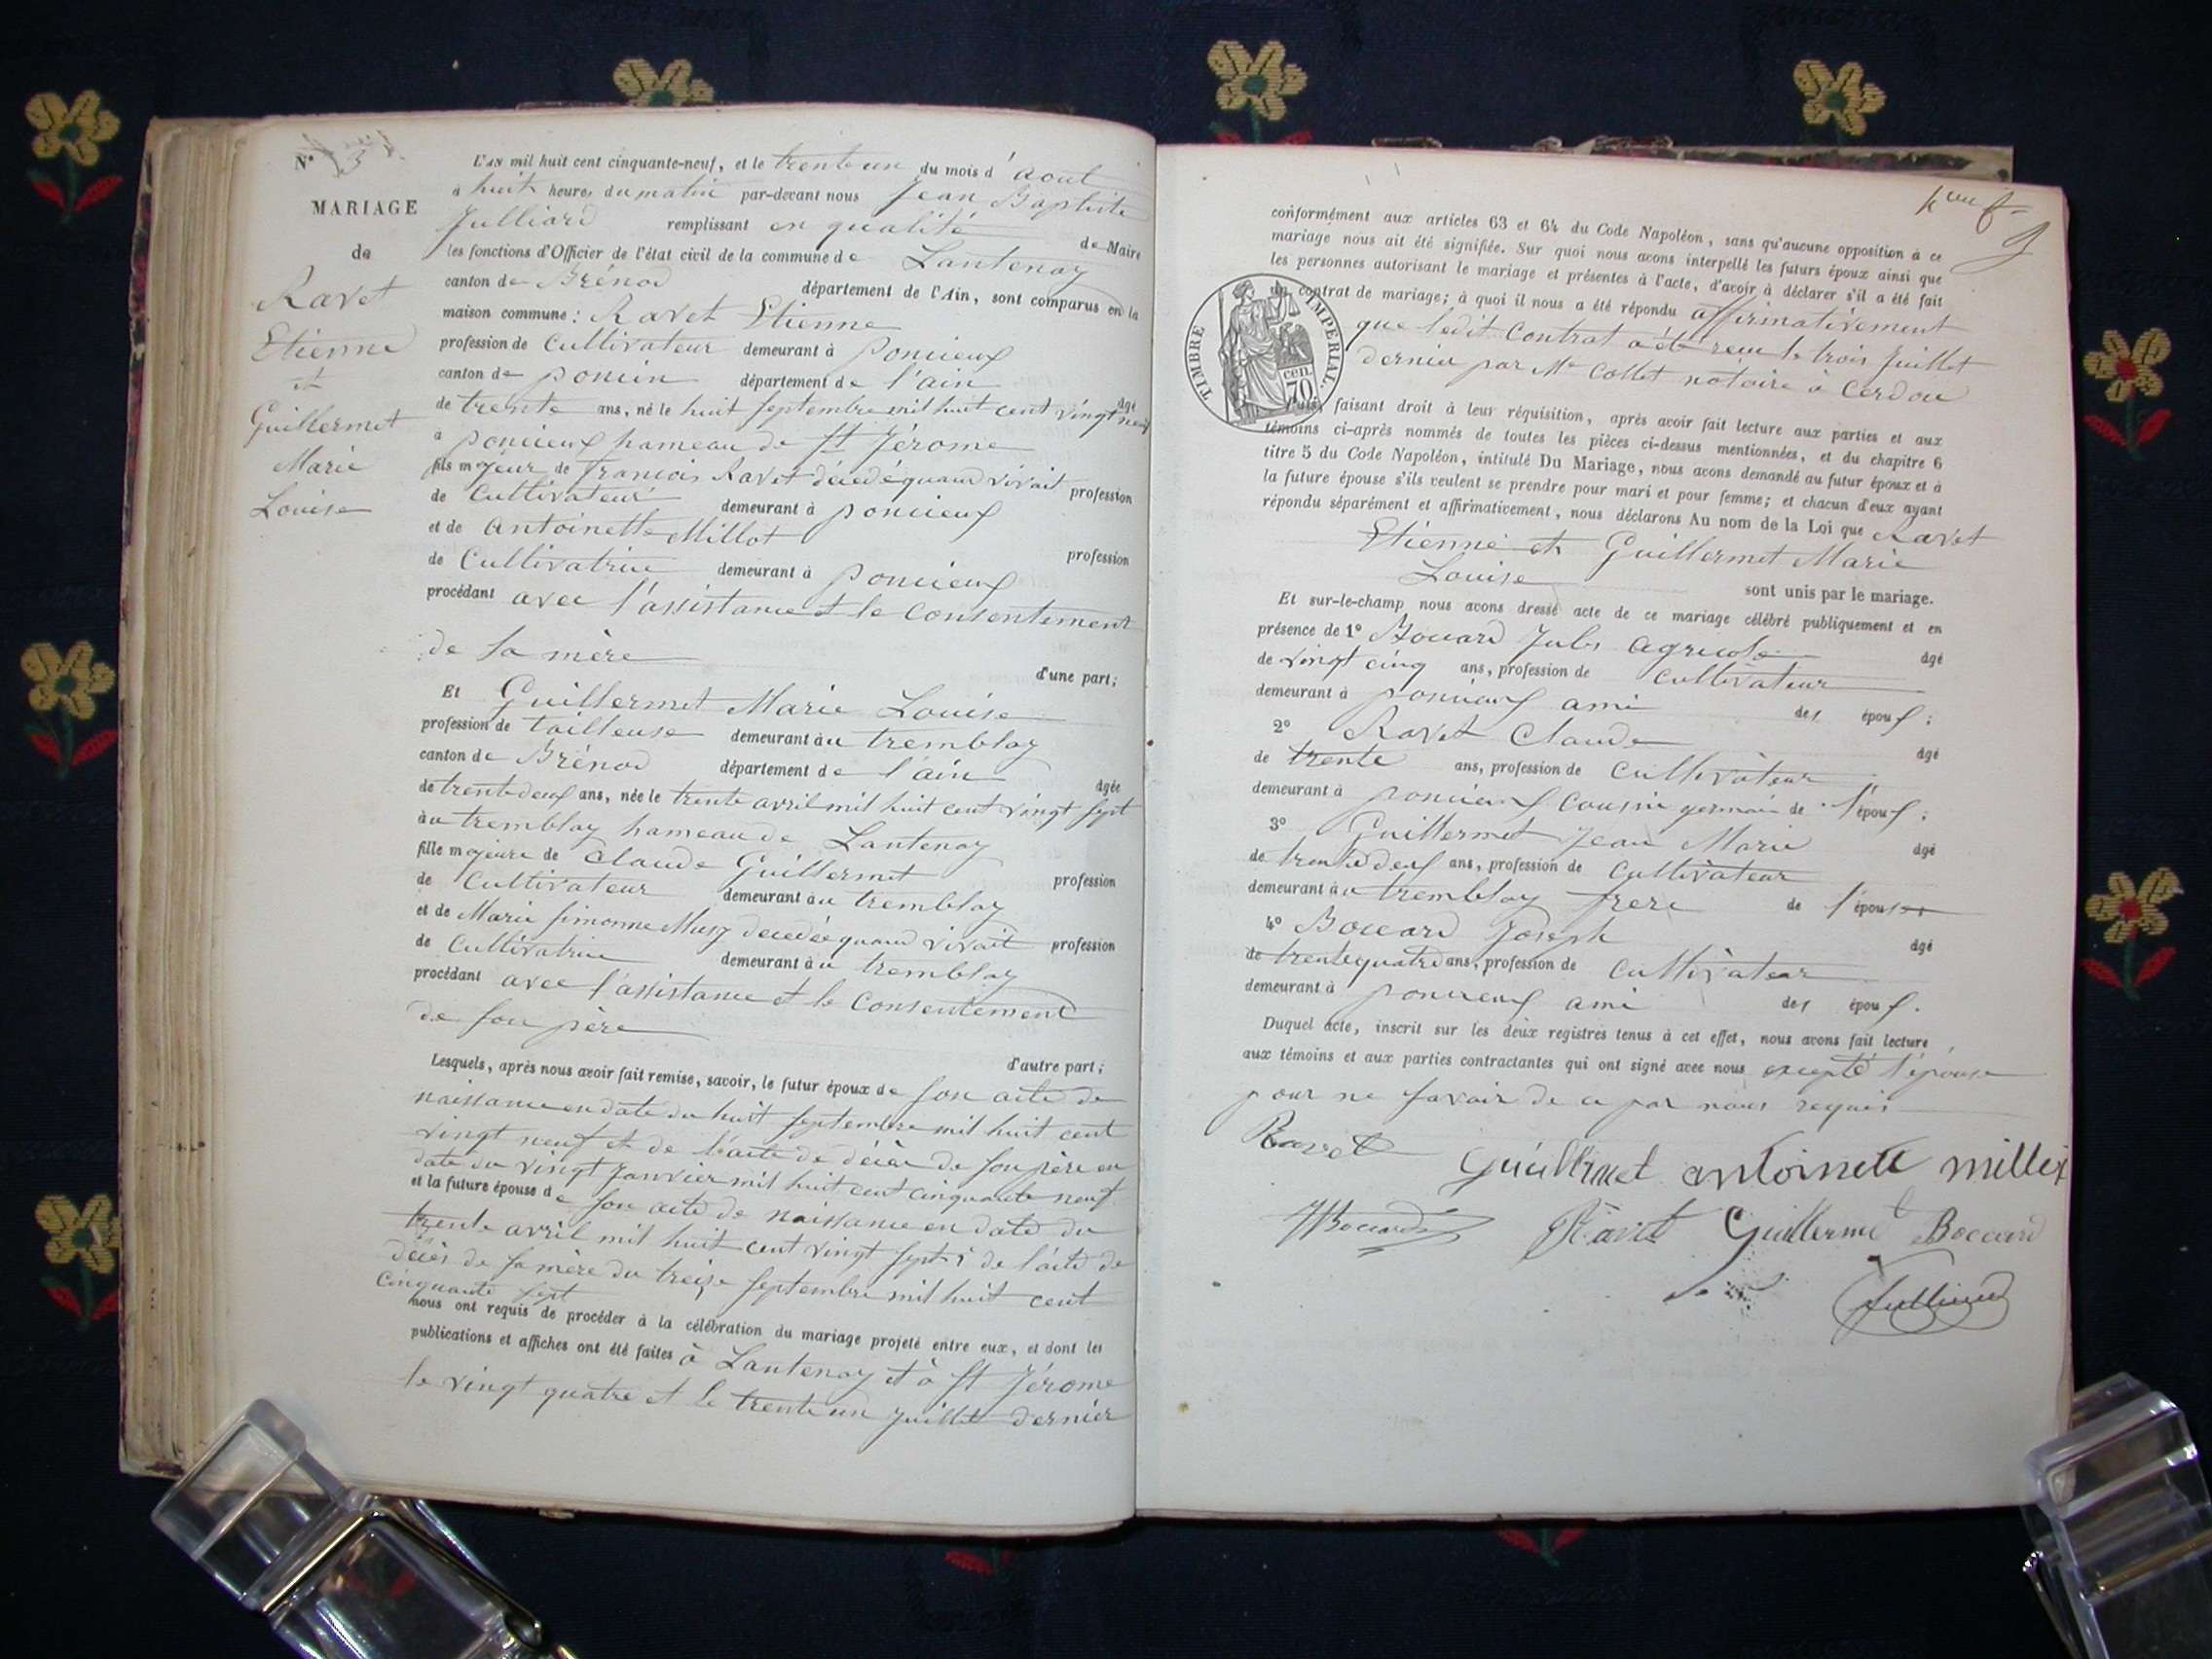 N° 3
MARIAGE
de
Ravet
Etienne
et
Guillermet
Marie
Louise
L'AN mil huit cent cinquante-neuf, et le trente un du mois d'aout
à huit heures du matin par-devant nous Jean Baptiste
Julliard remplissant en qualité de Maire
les fonctions d'Officier de l'état civil de la commune de Lantenay
canton de Brénod département de l'Ain, sont comparus en la
maison commune : Ravet Etienne
profession de cultivateur demeurant à Poncieux
canton de poncin département de l'ain
agé
de trente ans, né le huit septembre mil huit cent vingt neuf
à poncieux hameau de St Jérome
fils majeur de françois Ravet décédé quand vivait profession
de Cultivateur demeurant à poncieux
et de antoinette Millot
profession
de Cultivatrice demeurant à poncieux
procédant avec l'assistance et le Consentement
de sa mère
d'une part;
Et Guillermet Marie Louise
profession de tailleuse demeurant au tremblay
canton de Brénod département de l'ain
agée
de trente deux ans, née le trente avril mil huit cent vingt sept
au tremblay hameau de Lantenay
fille majeure de Claude Guillermet
profession
de Cultivateur demeurant au tremblay
et de Marie simonne Musy decedée quand vivait profession
de Cultivatrice demeurant au tremblay
procédant avec l'assistance et le Consentement
de son père
d'autre part;
Lesquels, après nous avoir fait remise, savoir, le futur époux de son acte de
naissance en date du huit septembre mil huit cent
vingt neuf et de l'acte de décès de son père en
date du vingt janvier mil huit cent cinquante neuf
et la future épouse de son acte de naissance en date du
trente avril mil huit cent vingt sept de l'acte de
décès de sa mère du treize septembre mil huit cent
cinquante sept
nous ont requis de procéder à la célébration du mariage projeté entre eux, et dont les
publications et affiches ont été faites à Lantenay et à St Jérome
le vingt quatre et le trente un juillet dernier
conformément aux articles 63 et 64 du Code Napoléon, sans qu'aucune opposition à ce
mariage nous ait été signifiée. Sur quoi nous avons interpellé les futurs époux ainsi que
les personnes autorisant le mariage et présentes à l'acte, d'avoir à déclarer s'il a été fait
un contrat de mariage; à quoi il nous a été répondu affirmativement
que ledit Contrat a été reçu le trois juillet
dernier par Me Collet notaire à Cerdon
TIMBRE IMPÉRIAL.
70 cen
Puis, faisant droit à leur réquisition, après avoir fait lecture aux parties et aux
témoins ci-après nommés de toutes les pièces ci-dessus mentionnées, et du chapitre 6
titre 5 du Code Napoléon, intitulé Du Mariage, nous avons demandé au futur époux et à
la future épouse s'ils veulent se prendre pour mari et pour femme; et chacun d'eux ayant
répondu séparément et affirmativement, nous déclarons Au nom de la Loi que Ravet
Etienne et Guillermet Marie
Louise sont unis par le mariage.
Et sur-le-champ nous avons dressé acte de ce mariage célébré publiquement et en
présence de 1° Jules agricole
agé
de vingt cinq ans, profession de cultivateur
demeurant à poncieux ami des époux;
2° Ravet Claude
agé
de trente ans, profession de cultivateur
demeurant à poncieux cousin germain de l'époux;
3° Guillermet Jean Marie
agé
de trente deux ans, profession de Cultivateur
demeurant au tremblay frere de l'épouse
4° Boccard Joseph
agé
de trente quatre ans, profession de cultivateur
demeurant à poncieux ami des époux.
Duquel acte, inscrit sur les deux registres tenus à cet effet, nous avons fait lecture
aux témoins et aux parties contractantes qui ont signé avec nous excepté l'épouse
pour ne savoir de ce par nous requis
Ravet
Guillermet antoinette
Boccard Ravet Guillermet Boccard
Julliard